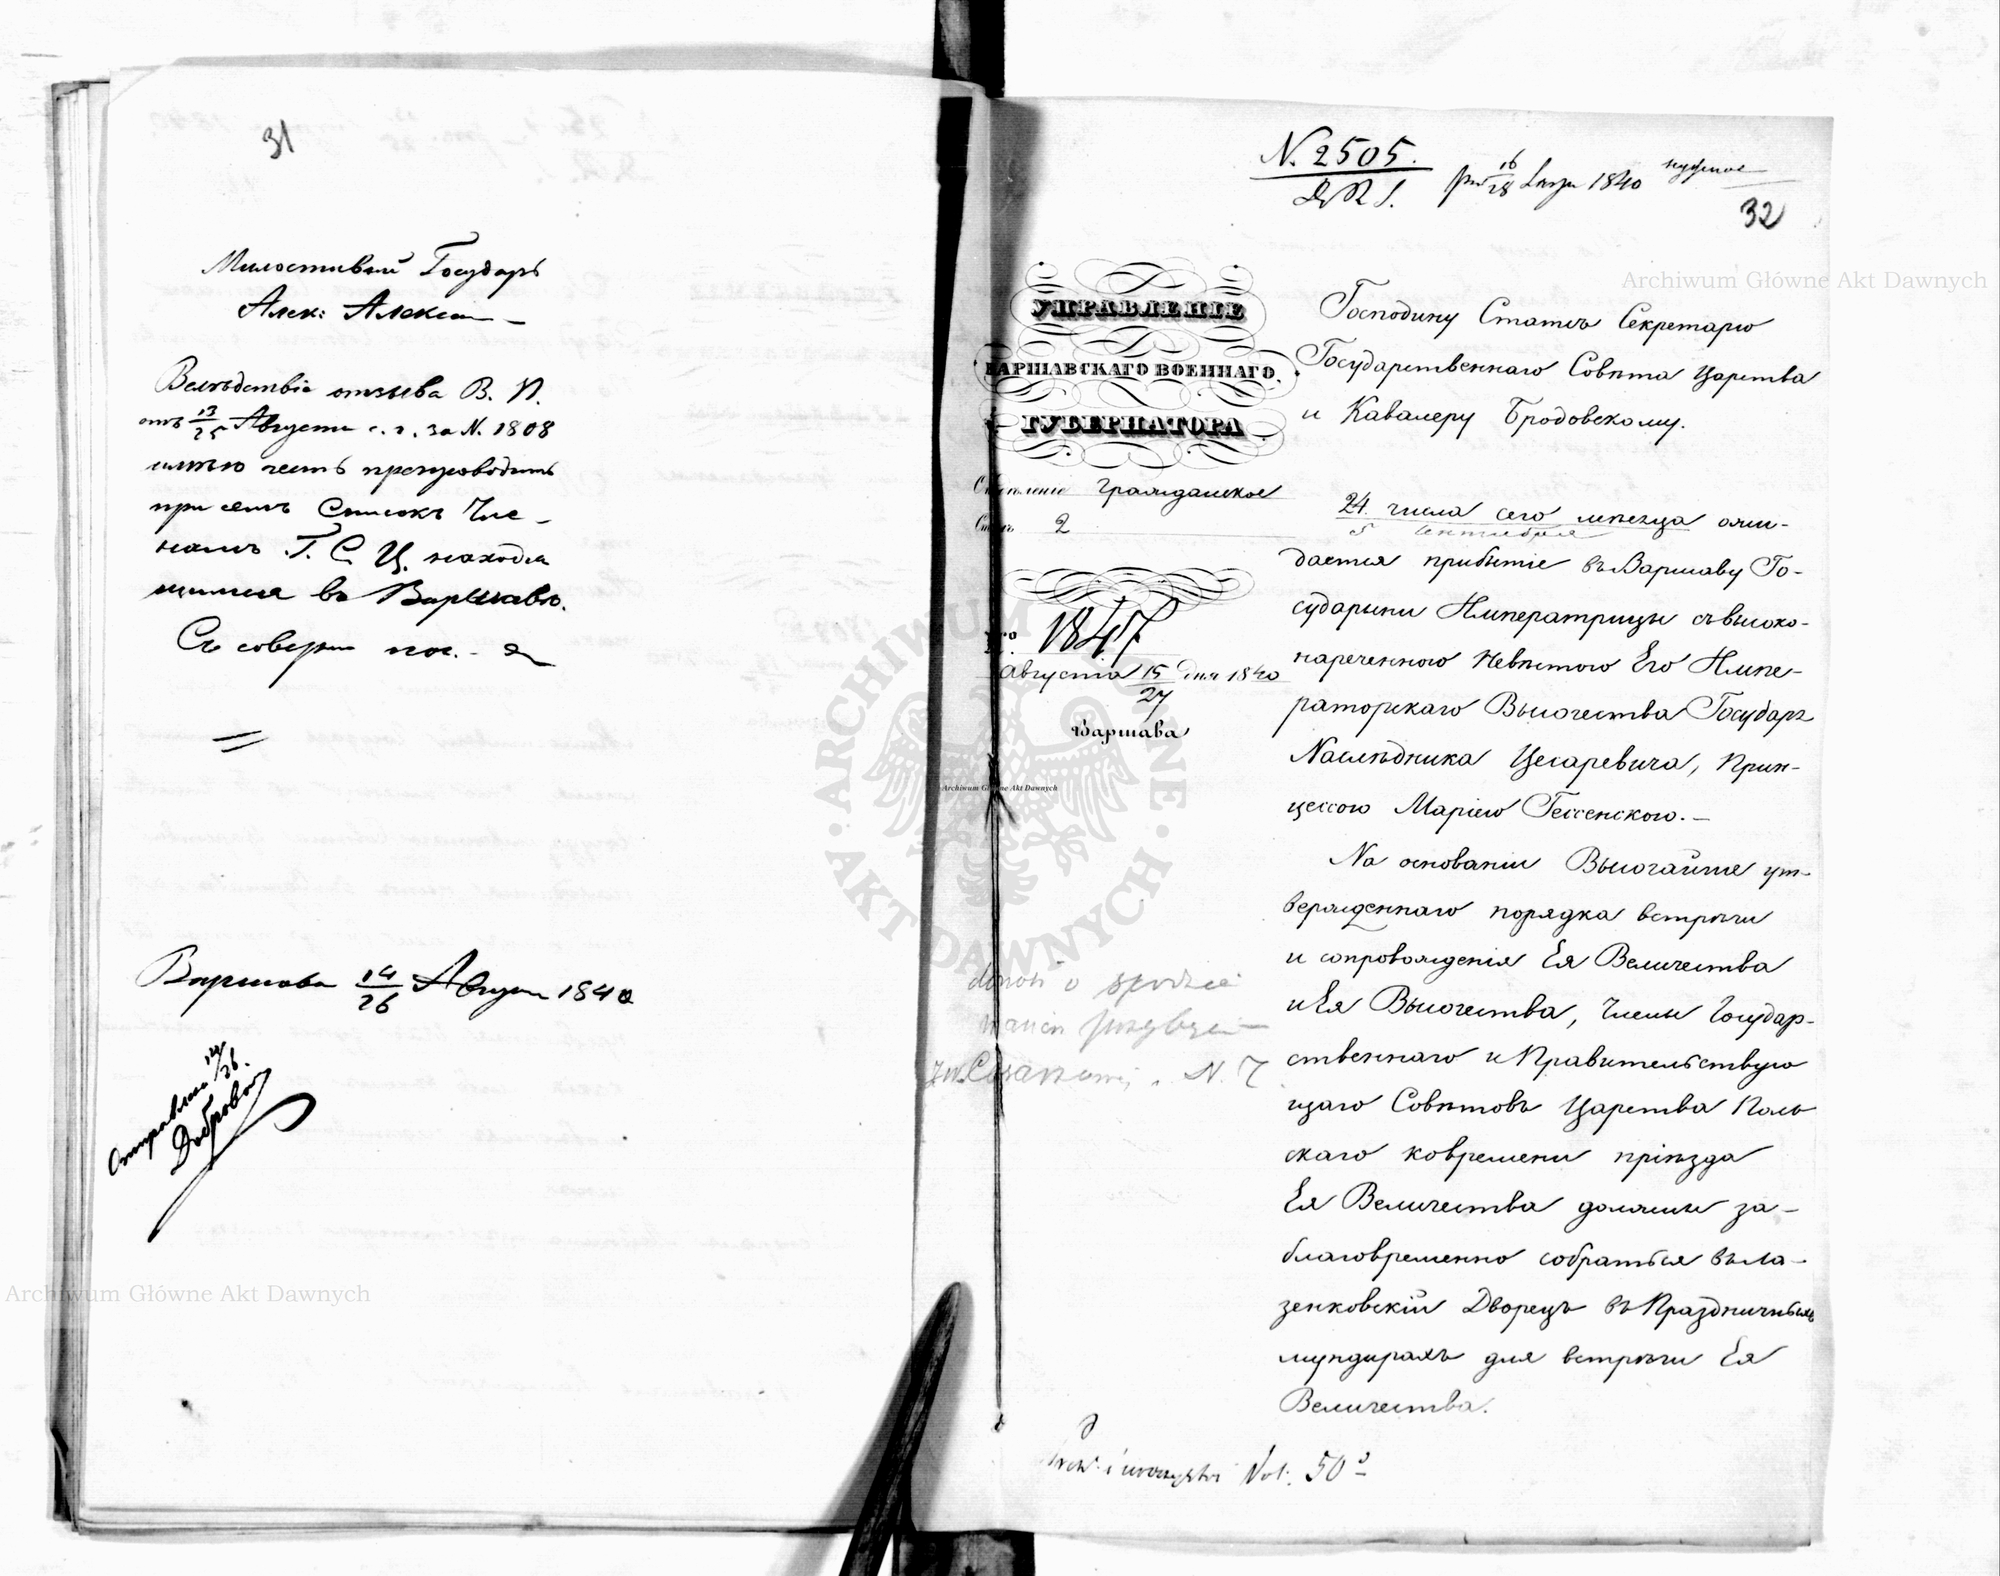 31
Милостивый Государь
Алек: Алексан –
Вслѣдствіе отзыва В. П.
отъ 13/25 Августа с. г. за N. 1808
имѣю честь препроводить
при семъ Списокъ Чле–
намъ Г. С. Ц. находя
щимся въ Варшавѣ.
Съ соверш поч. –
Варшава 14/26 Август 1840
Отправлен 14/26.
N. 2505.
16/28 1840 нужное
32
УПРАВЛЕНІЕ
ВАРШАВСКАГО ВОЕННАГО
ГУБЕРНАТОРА
Отдѣленіе Гражданское
Столъ 2
1847
Августа 15/27 дня 1840
Варшава
Господину Статсъ Секретарю
Государственнаго Совѣта Царства
и Кавалеру Бродовскому.
24 числа сего мѣсяца ожи–
5 Сентября
дается прибытіе въ Варшаву Го–
сударыни Императрицы съ высоко–
нареченною Невѣстою Его Импе–
раторскаго Высочества Государя
Наслѣдника Цесаревича, Прин–
цессою Маріею Гессенскою. –
На основаніи Высочайше ут–
вержденнаго порядка встрѣчи
и сопровожденія Ея Величества
и Ея Высочества, Члены Государ–
ственнаго и Правительствую
щаго Совѣтовъ Царства Поль
скаго ко времени пріѣзда
Ея Величества должны за–
благовременно собраться въ Ла–
зенковскій Дворецъ въ Праздничныхъ
мундирахъ для встрѣчи Ея
Величества.
Vol. 50
Archiwum Główne Akt Dawnych
Archiwum Główne Akt Dawnych
Archiwum Główne Akt Dawnych
ARCHIWUM GŁÓWNE
AKT DAWNYCH